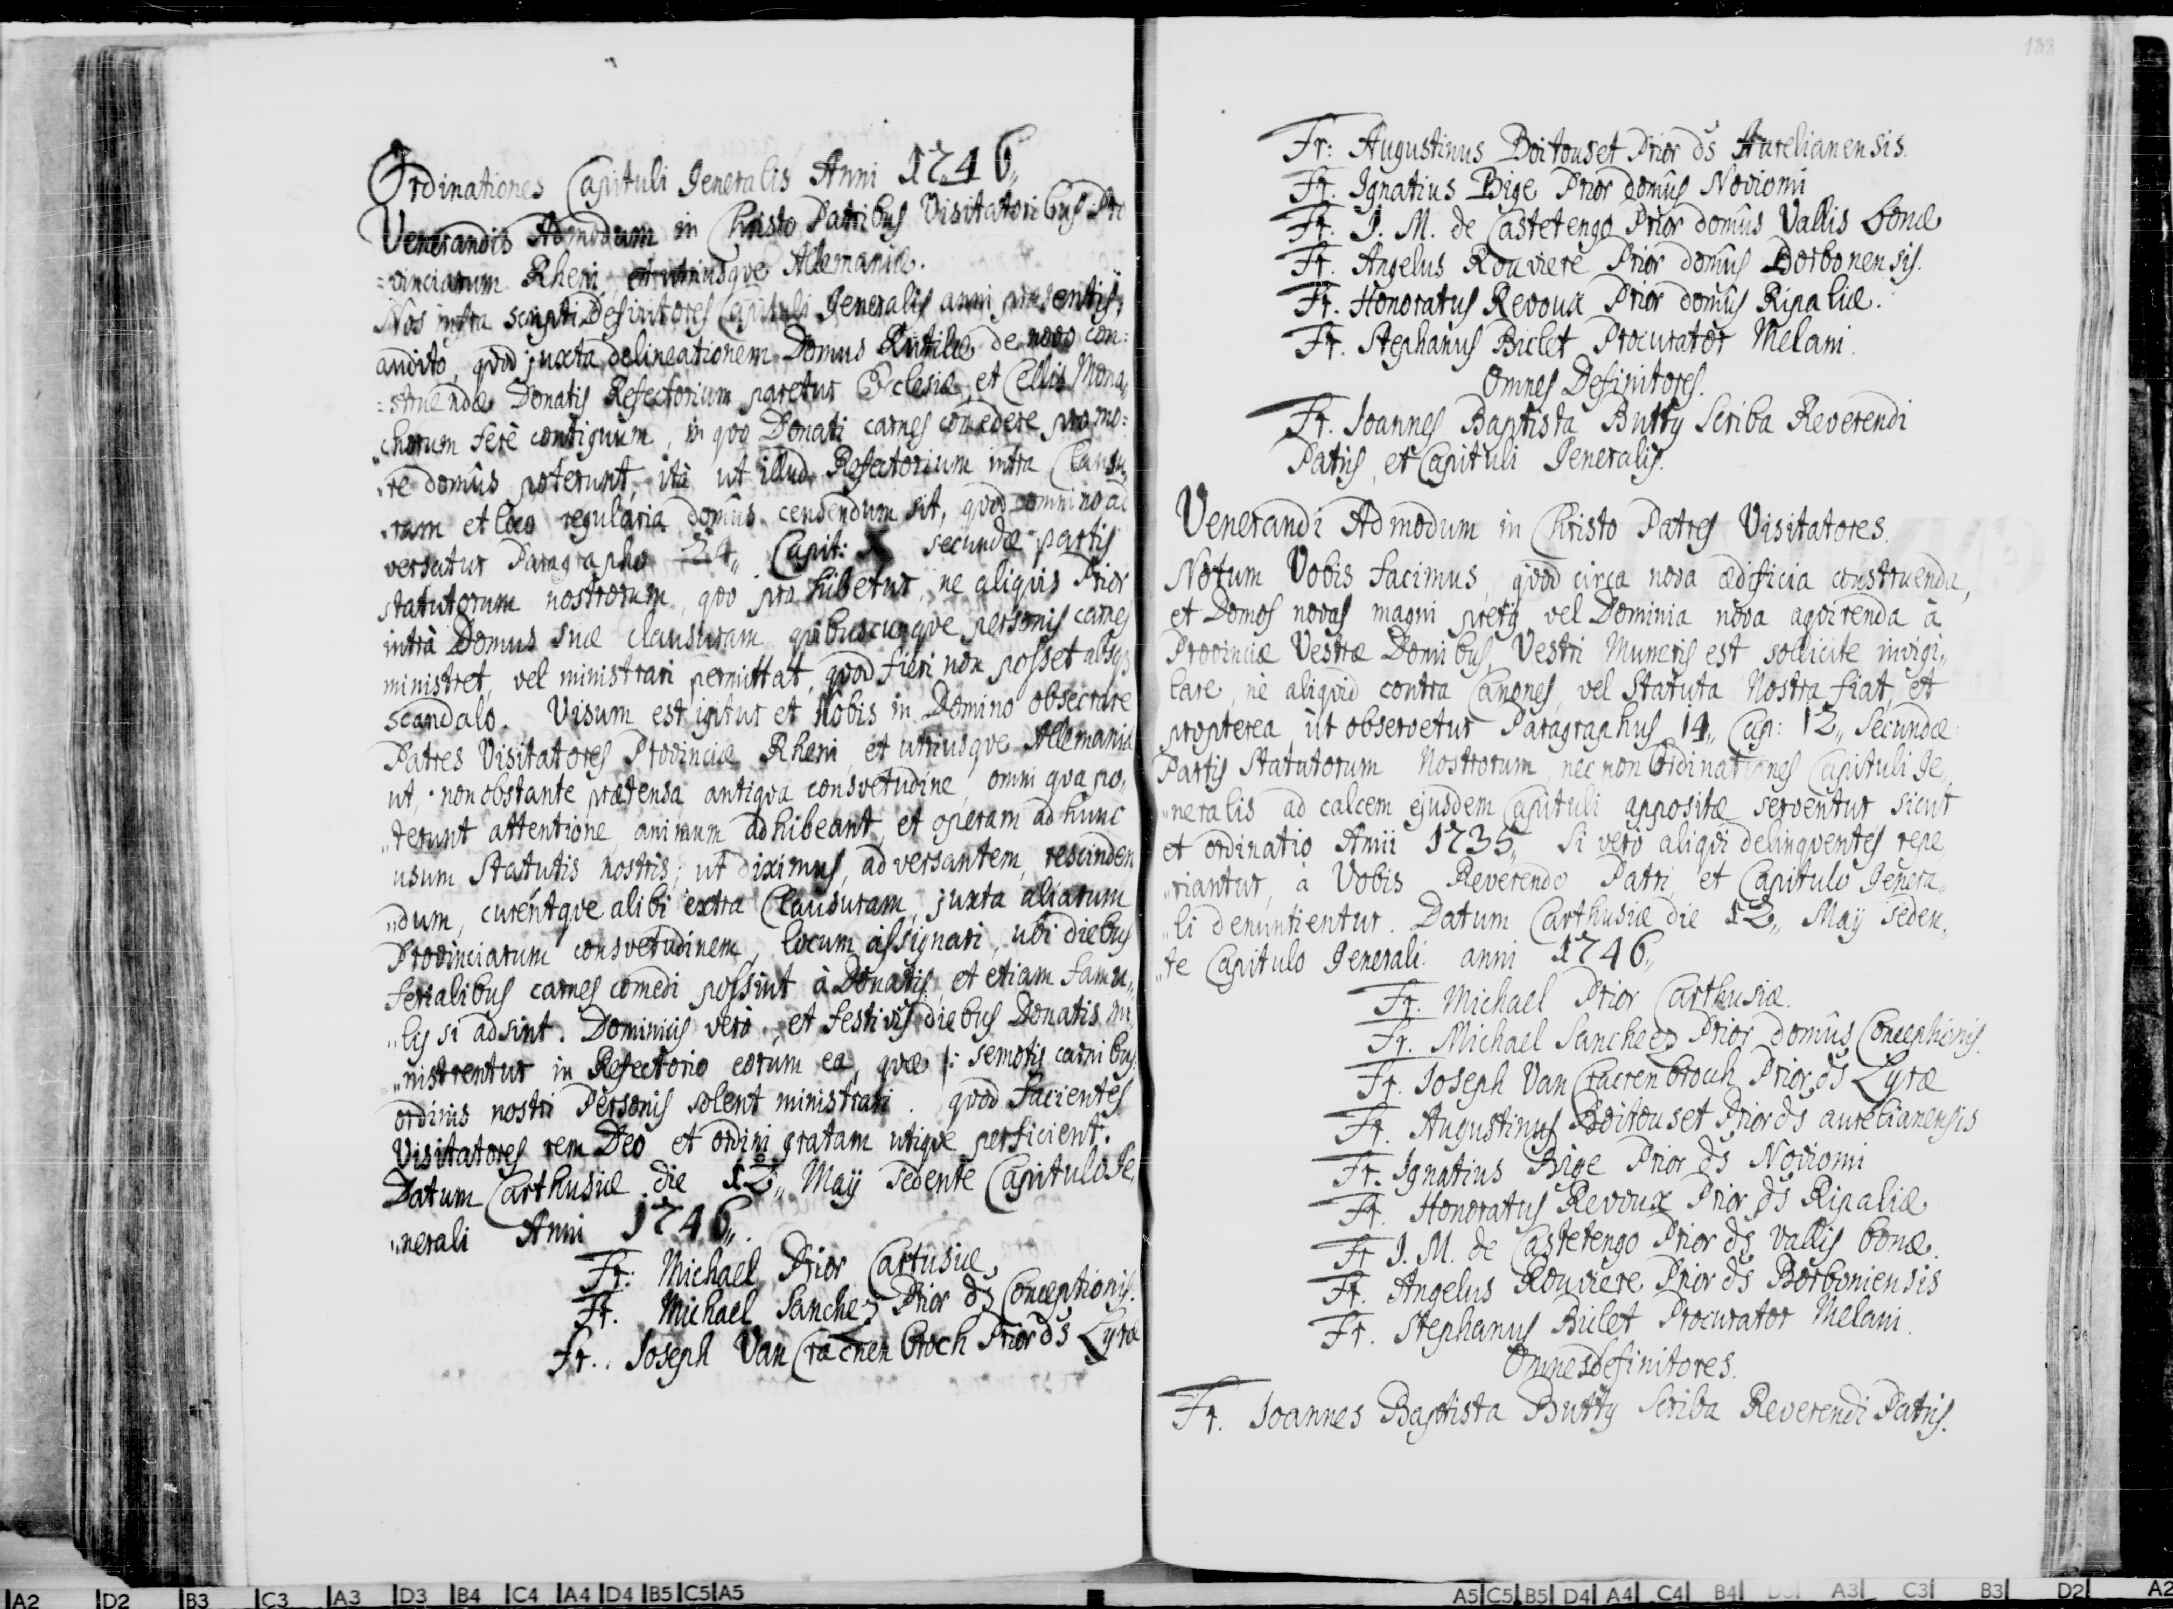 Ordinationes Capituli Generalis Anni 1746,,
Venerandis Admodum in Christo Patribus Visitatoribus Pro
=vinciarum Rheni et utriusque Allemaniæ.
Nos infra scripti Definitores Capituli Generalis anni præsentis,
audito, quod juxta delineationem Domus Rutilæ de novo con:
=struendæ Donatis Refectorium paretur Ecclesiæ, et Cellis Mona,,
,,chorum ferè contiguum, in quo Donati carnes comedere pro mo:
,,re domûs poterunt, ità ut illud Refectorium intra Clausu,,
,,ram et loca regularia domûs censendum sit, quod omnino ad
versatur Paragrapho 24,, Capit: X secundæ partis
statutorum nostrorum, quo prohibetur, ne aliquis Prior
intrà Domus suæ clausuram quibuscunque personis carnes
ministret, vel ministrari permittat, quod fieri non posset absq;
scandalo. Visum est igitur et nobis in Domino obsecrare
Patres Visitatores Provinciæ Rheni, et utriusque Allemaniæ
ut, non obstante prætensa antiqua consvetudine, omni qua po,,
,,terunt attentione, animum adhibeant, et operam ad hunc
usum Statutis nostris; ut diximus, adversantem, rescinden
,,dum, curentque alibi extra Clausuram, juxta aliarum
Provinciarum consvetudinem, locum assignari, ubi diebus
ferialibus carnes comedi possint à Donatis, et etiam famu,,
,,lis si adsint. Dominicis verò, et festivis diebus Donatis mi
,,nistrentur in Refectorio eorum ea, quæ |: semotis carnibus
ordinis nostri Personis solent ministrari. quod facientes
Visitatores rem Deo et ordini gratam utique perficient.
Datum Carthusiæ die 12,, Maÿ sedente Capitulo Ge,,
,,nerali Anni 1746,,.
Fr: Michael Prior Cartusiæ,
Fr. Michael Sanchez Prior ds Conceptionis.
Fr.. Joseph Van Cracnenbroch Prior ds Lyræ
188
Fr: Augustinus Boitouset Prior ds Aurelianensis.
Fr. Ignatius Bige Prior domûs Noviomi
Fr. J. M. de Castetengo Prior domûs Vallis bonæ
Fr. Angelus Rouviere Prior domûs Borbonensis.
Fr. Honoratus Revoux Prior domûs Ripaliæ.
Fr. Stephanus Biclet Procurator Melani.
Omnes Definitores.
Fr. Joannes Baptista Butty Scriba Reverendi
Patris, et Capituli Generalis.
Venerandi Admodum in Christo Patres Visitatores.
Notum Vobis facimus, quod circa nova ædificia construenda,
et Domos novas magni pretÿ vel Dominia nova aqvirenda à
Provinciæ Vestræ Domibus, Vestri Muneris est sollicite invigi,,
lare, nè aliquid contra Canones, vel Statuta Nostra fiat, et
propterea ut observetur Paragraphus 14,, Cap: 12,, Secundæ
Partis Statutorum Nostrorum, nec non Ordinationes Capituli Ge,,
,,neralis ad calcem ejusdem Capituli appositæ serventur sicut
et ordinatio Anni 1735,, Si verò aliqui delinquentes repe,,
,,riantur, à Vobis Reverendo Patri, et Capitulo Genera,,
,,li denuntientur. Datum Carthusiæ die 12,, Maÿ seden,,
,,te Capitulo Generali anni 1746,,
Fr. Michael Prior Carthusiæ.
Fr. Michael Sanchez Prior domûs Conceptionis.
Fr. Joseph Van Cracrenbroch Prior ds Lyræ
Fr. Augustinus Boitouset Prior ds aurelianensis
Fr. Ignatius Bige Prior ds Noviomi
Fr. Honoratus Revoux Prior ds Ripaliæ
Fr J. M. de Castetengo Prior ds Vallis bonæ.
Fr. Angelus Rouviere Prior ds Borboniensis
Fr. Stephanus Biclet Procurator Melani.
Omnes definitores.
Fr. Joannes Baptista Butty Scriba Reverendi Patris.
A2 D2 B3 C3 A3 D3 B4 C4 A4 D4 B5 C5 A5
A5 C5 B5 D4 A4 C4 B4 D3 A3 C3 B3 D2 A2